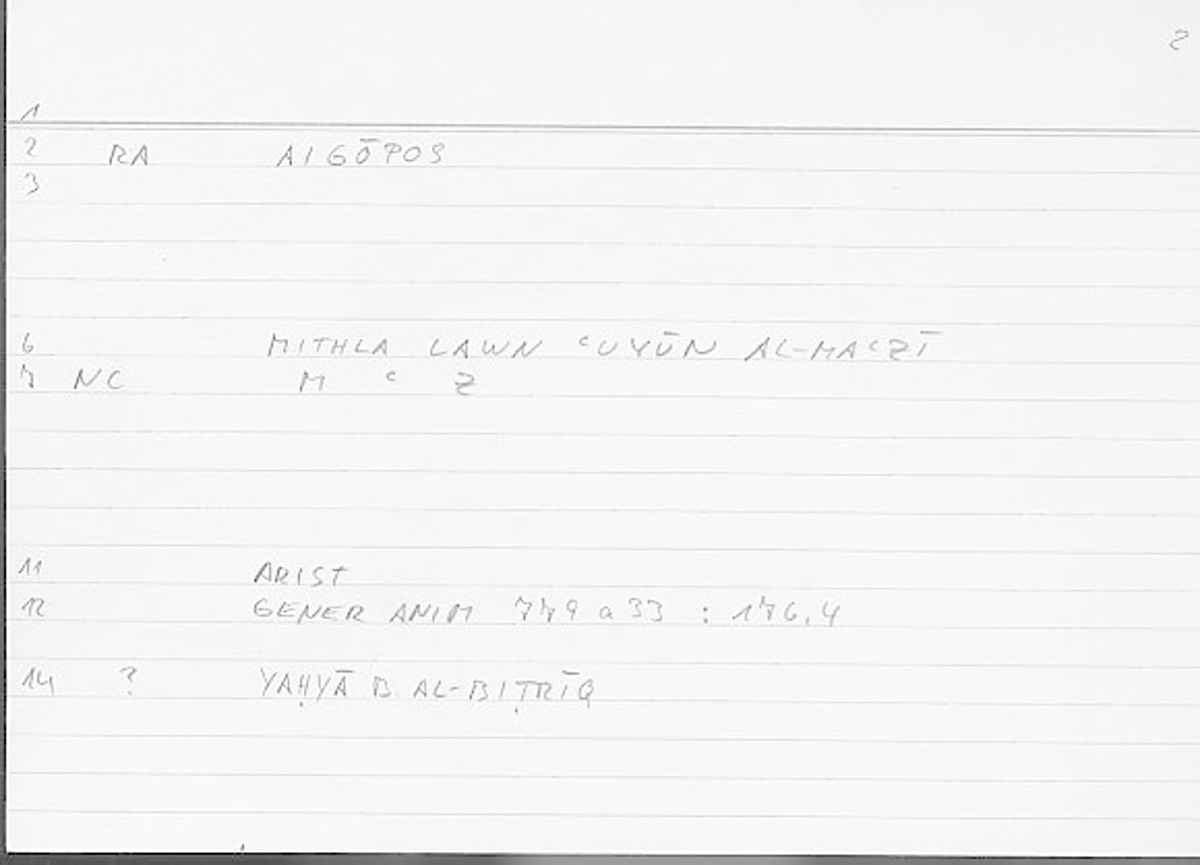 2
1
2 RA AIGŌPOS
3
6 MITHLA LAWN ᶜUYŪN AL-MAᶜZĪ
7 NC M ᶜ Z
11 ARIST
12 GENER ANIM 779 a 33 : 176,4
14 ? YAḤYĀ B AL-BIṬRĪQ